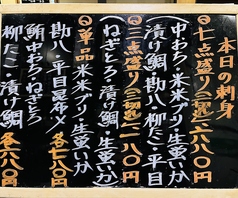 本日の刺身
◎七点盛り(三切)二六八〇円
(中おろ・米米ブリ・生蛍いか
漬け鯛・勘八・柳たこ・平目)
◎三点盛り(三切)一一八〇円
(漬け鯛・米米ブリ・生蛍いか)
◎単品 米米ブリ・生蛍いか
勘八・平目昆布〆 各七八〇円
鮪中おろ・ねぎとろ
柳たこ・漬け鯛 各六八〇円